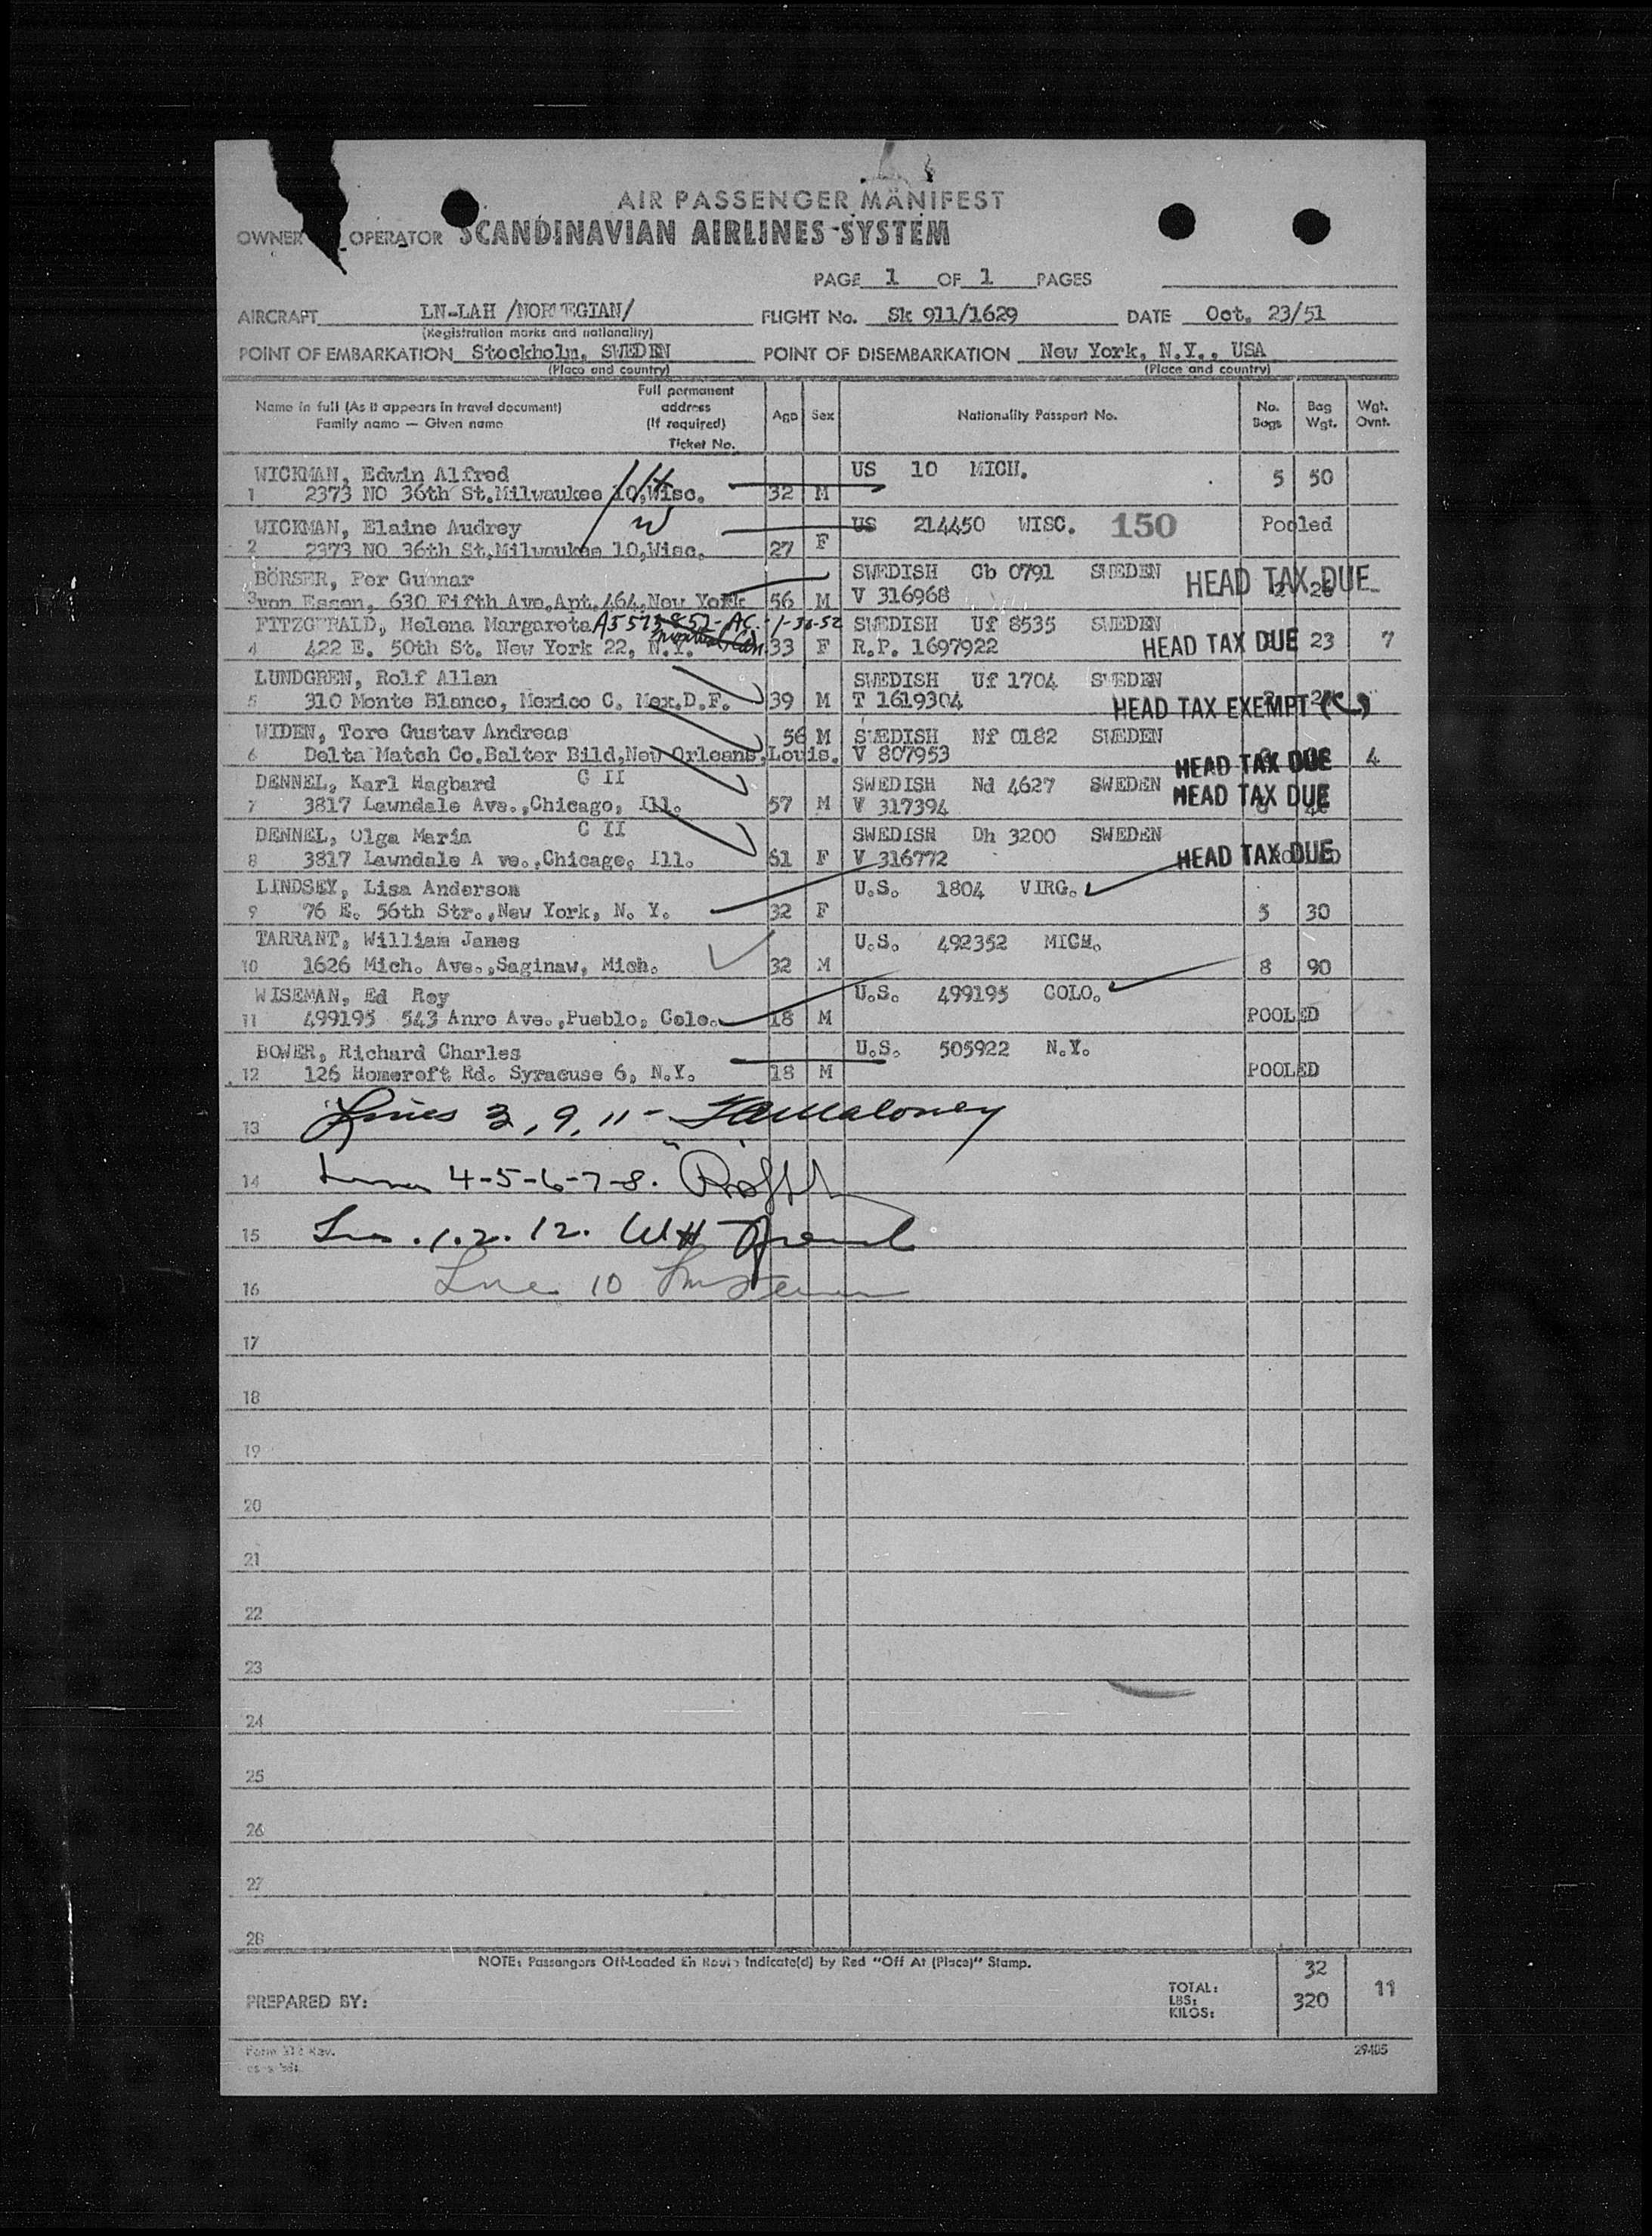 AIR PASSENGER MANIFEST
OWNER OPERATOR SCANDINAVIAN AIRLINES SYSTEM
PAGE 1 OF 1 PAGES
AIRCRAFT LN-LAH /NORWEGIAN/ FLIGHT No. Sk 911/1629 DATE Oct. 23/51
(Registration marks and nationality)
POINT OF EMBARKATION Stockholm, SWEDEN POINT OF DISEMBARKATION New York, N.Y., USA
(Place and country) (Place and country)
Name in full (As it appears in travel document) Family name — Given name Full permanent address (If required) Ticket No. Age Sex Nationality Passport No. No. Bags Bag Wgt. Wgt. Ovnt.
WICKMAN, Edwin Alfred US 10 MICH. 5 50
1 2373 NO 36th St.Milwaukee 10,Wisc. 32 M
WICKMAN, Elaine Audrey US 214450 WISC. 150 Pooled
2 2373 NO 36th St,Milwaukee 10,Wisc. 27 F
BÖRSER, Per Gunnar SWEDISH Cb 0791 SWEDEN HEAD TAX DUE
3 von Essen, 630 Fifth Ave,Apt.464,New York 56 M V 316968
FITZGERALD, Helena Margareta A5573857-AC-1-30-52 SWEDISH Uf 8535 SWEDEN
4 422 E. 50th St. New York 22, N.Y. 33 F R.P. 1697922 HEAD TAX DUE 23 7
LUNDGREN, Rolf Allan SWEDISH Uf 1704 SWEDEN
5 310 Monte Blanco, Mexico C. Mex.D.F. 39 M T 1619304 HEAD TAX EXEMPT
WIDEN, Tore Gustav Andreas 56 M SWEDISH Nf 0182 SWEDEN
6 Delta Match Co.Balter Bild,New Orleans,Louis. V 807953 HEAD TAX DUE 4
DENNEL, Karl Hagbard C II SWEDISH Nd 4627 SWEDEN
7 3817 Lawndale Ave.,Chicago, Ill. 57 M V 317394 HEAD TAX DUE
DENNEL, Olga Maria C II SWEDISH Dh 3200 SWEDEN
8 3817 Lawndale A ve.,Chicago, Ill. 61 F V 316772 HEAD TAX DUE
LINDSEY, Lisa Anderson U.S. 1804 VIRG.
9 76 E. 56th Str.,New York, N. Y. 32 F 5 30
TARRANT, William James U.S. 492352 MICH.
10 1626 Mich. Ave.,Saginaw, Mich. 32 M 8 90
WISEMAN, Ed Roy U.S. 499195 COLO.
11 499195 543 Anro Ave.,Pueblo, Colo. 18 M POOLED
BOWER, Richard Charles U.S. 505922 N.Y.
12 126 Homeroft Rd. Syracuse 6, N.Y. 18 M POOLED
13 Lines 3, 9, 11 - Maloney
14 4-5-6-7-8.
15 1.2.12. WH
16 Line 10
17
18
19
20
21
22
23
24
25
26
27
28
NOTE: Passengers Off-Loaded En Route Indicate(d) by Red "Off At (Place)" Stamp.
PREPARED BY: TOTAL: 32
LBS: 11
KILOS: 320
Form Rev.
29405